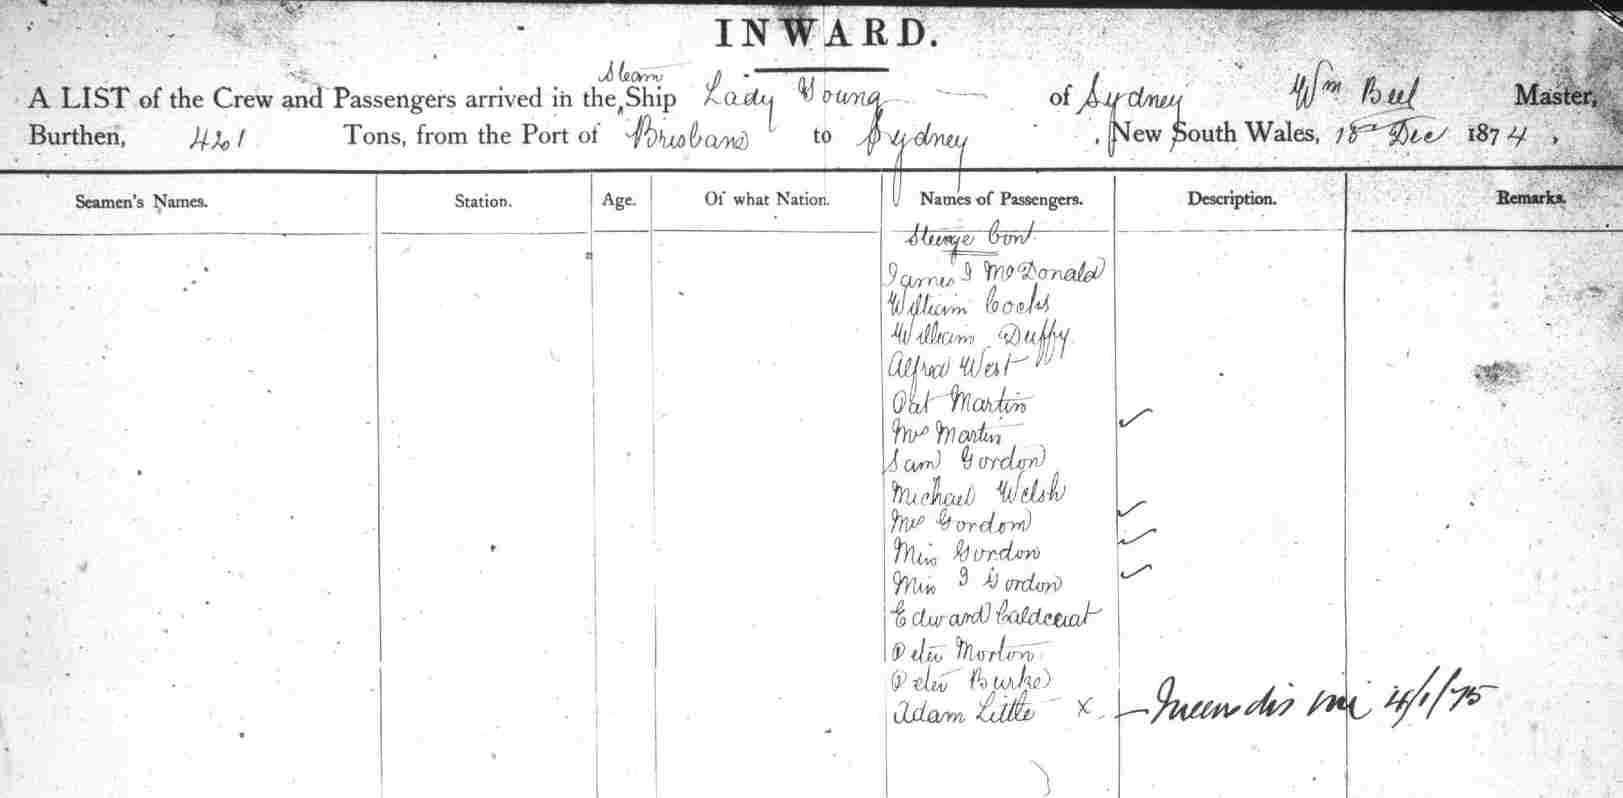 INWARD.
Steam
A LIST of the Crew and Passengers arrived in the ^ Ship Lady Young — of Sydney Wm Beel Master,
Burthen, 421 Tons, from the Port of Brisbane to Sydney , New South Wales, 18th Dec 1874 .
Seamen's Names. Station. Age. Of what Nation. Names of Passengers. Description. Remarks.
Steerage Cont
James I McDonald
William Cocks
William Duffy
Alfred West
Pat Martin
Mrs Martin ✓
Sam Gordon
Michael Welsh
Mrs Gordon ✓
Miss Gordon ✓
Miss I Gordon ✓
Edward
Peter Morton
Peter Burke
Adam Little x — 4/1/75